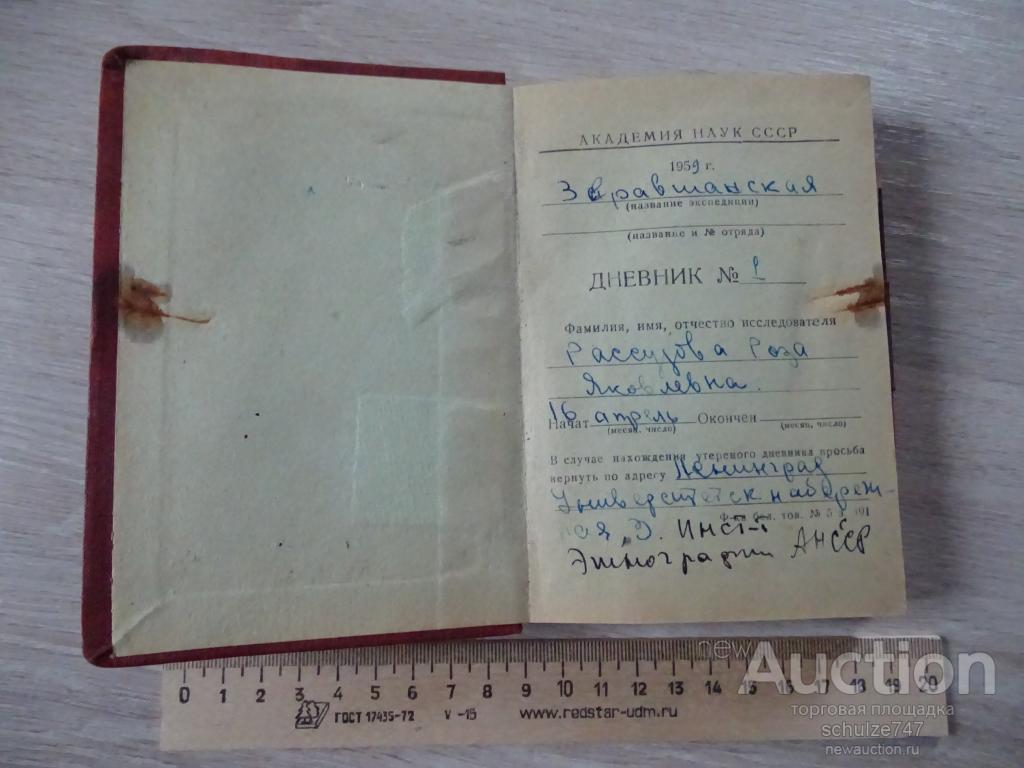 АКАДЕМИЯ НАУК СССР
1959 г.
Зеравшанская
(название экспедиции)
(название и № отряда)
ДНЕВНИК № 1
Фамилия, имя, отчество исследователя
Рассудова Роза
Яковлевна.
Начат 16 апрель Окончен
(месяц, число) (месяц, число)
В случае нахождения утереного дневника просьба
вернуть по адресу Ленинград
Университетск набереж-
Ф-ка бел. тов. №
ная, 3. Инст-т
Этнографии АНСССР
0 1 2 3 4 5 6 7 8 9 10 11 12 13 14 15 16 17 18 19 20
ГОСТ 17435-72 V -15 www.redstar-udm.ru
newAuction
торговая площадка
schulze747
newauction.ru